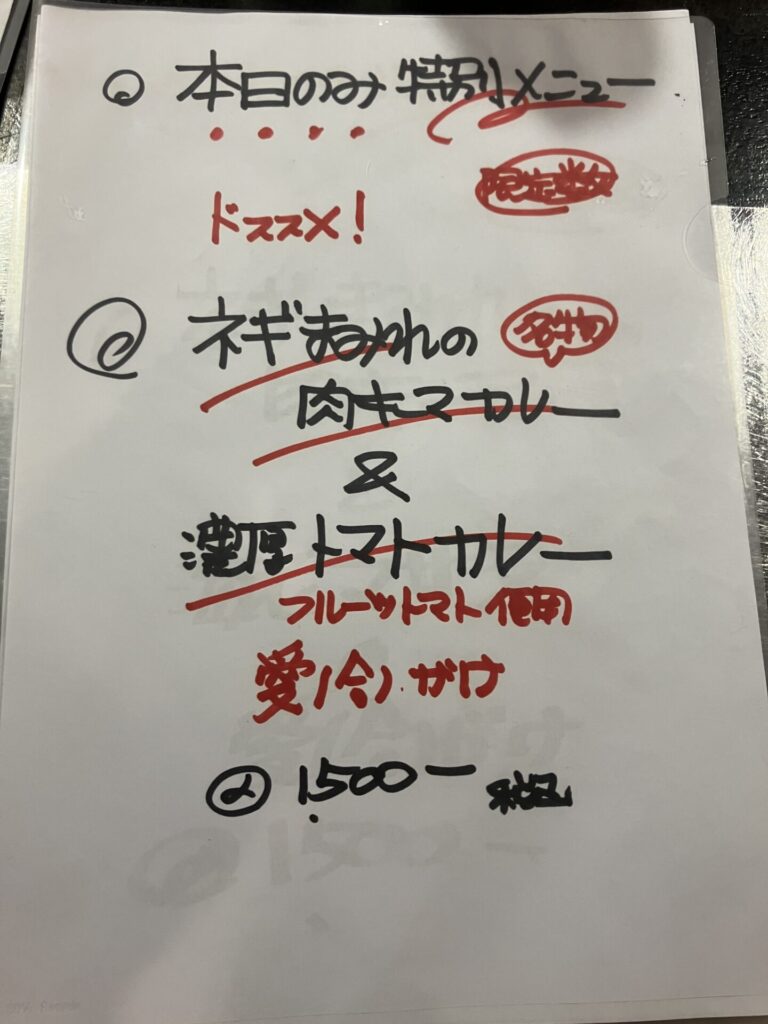 本日のみ 特別メニュー
限定数
ドススメ!
ネギまみれの
名物
肉キーマカレー
&
濃厚トマトカレー
フルーツトマト使用
愛(今)がけ
1.500ー 税込